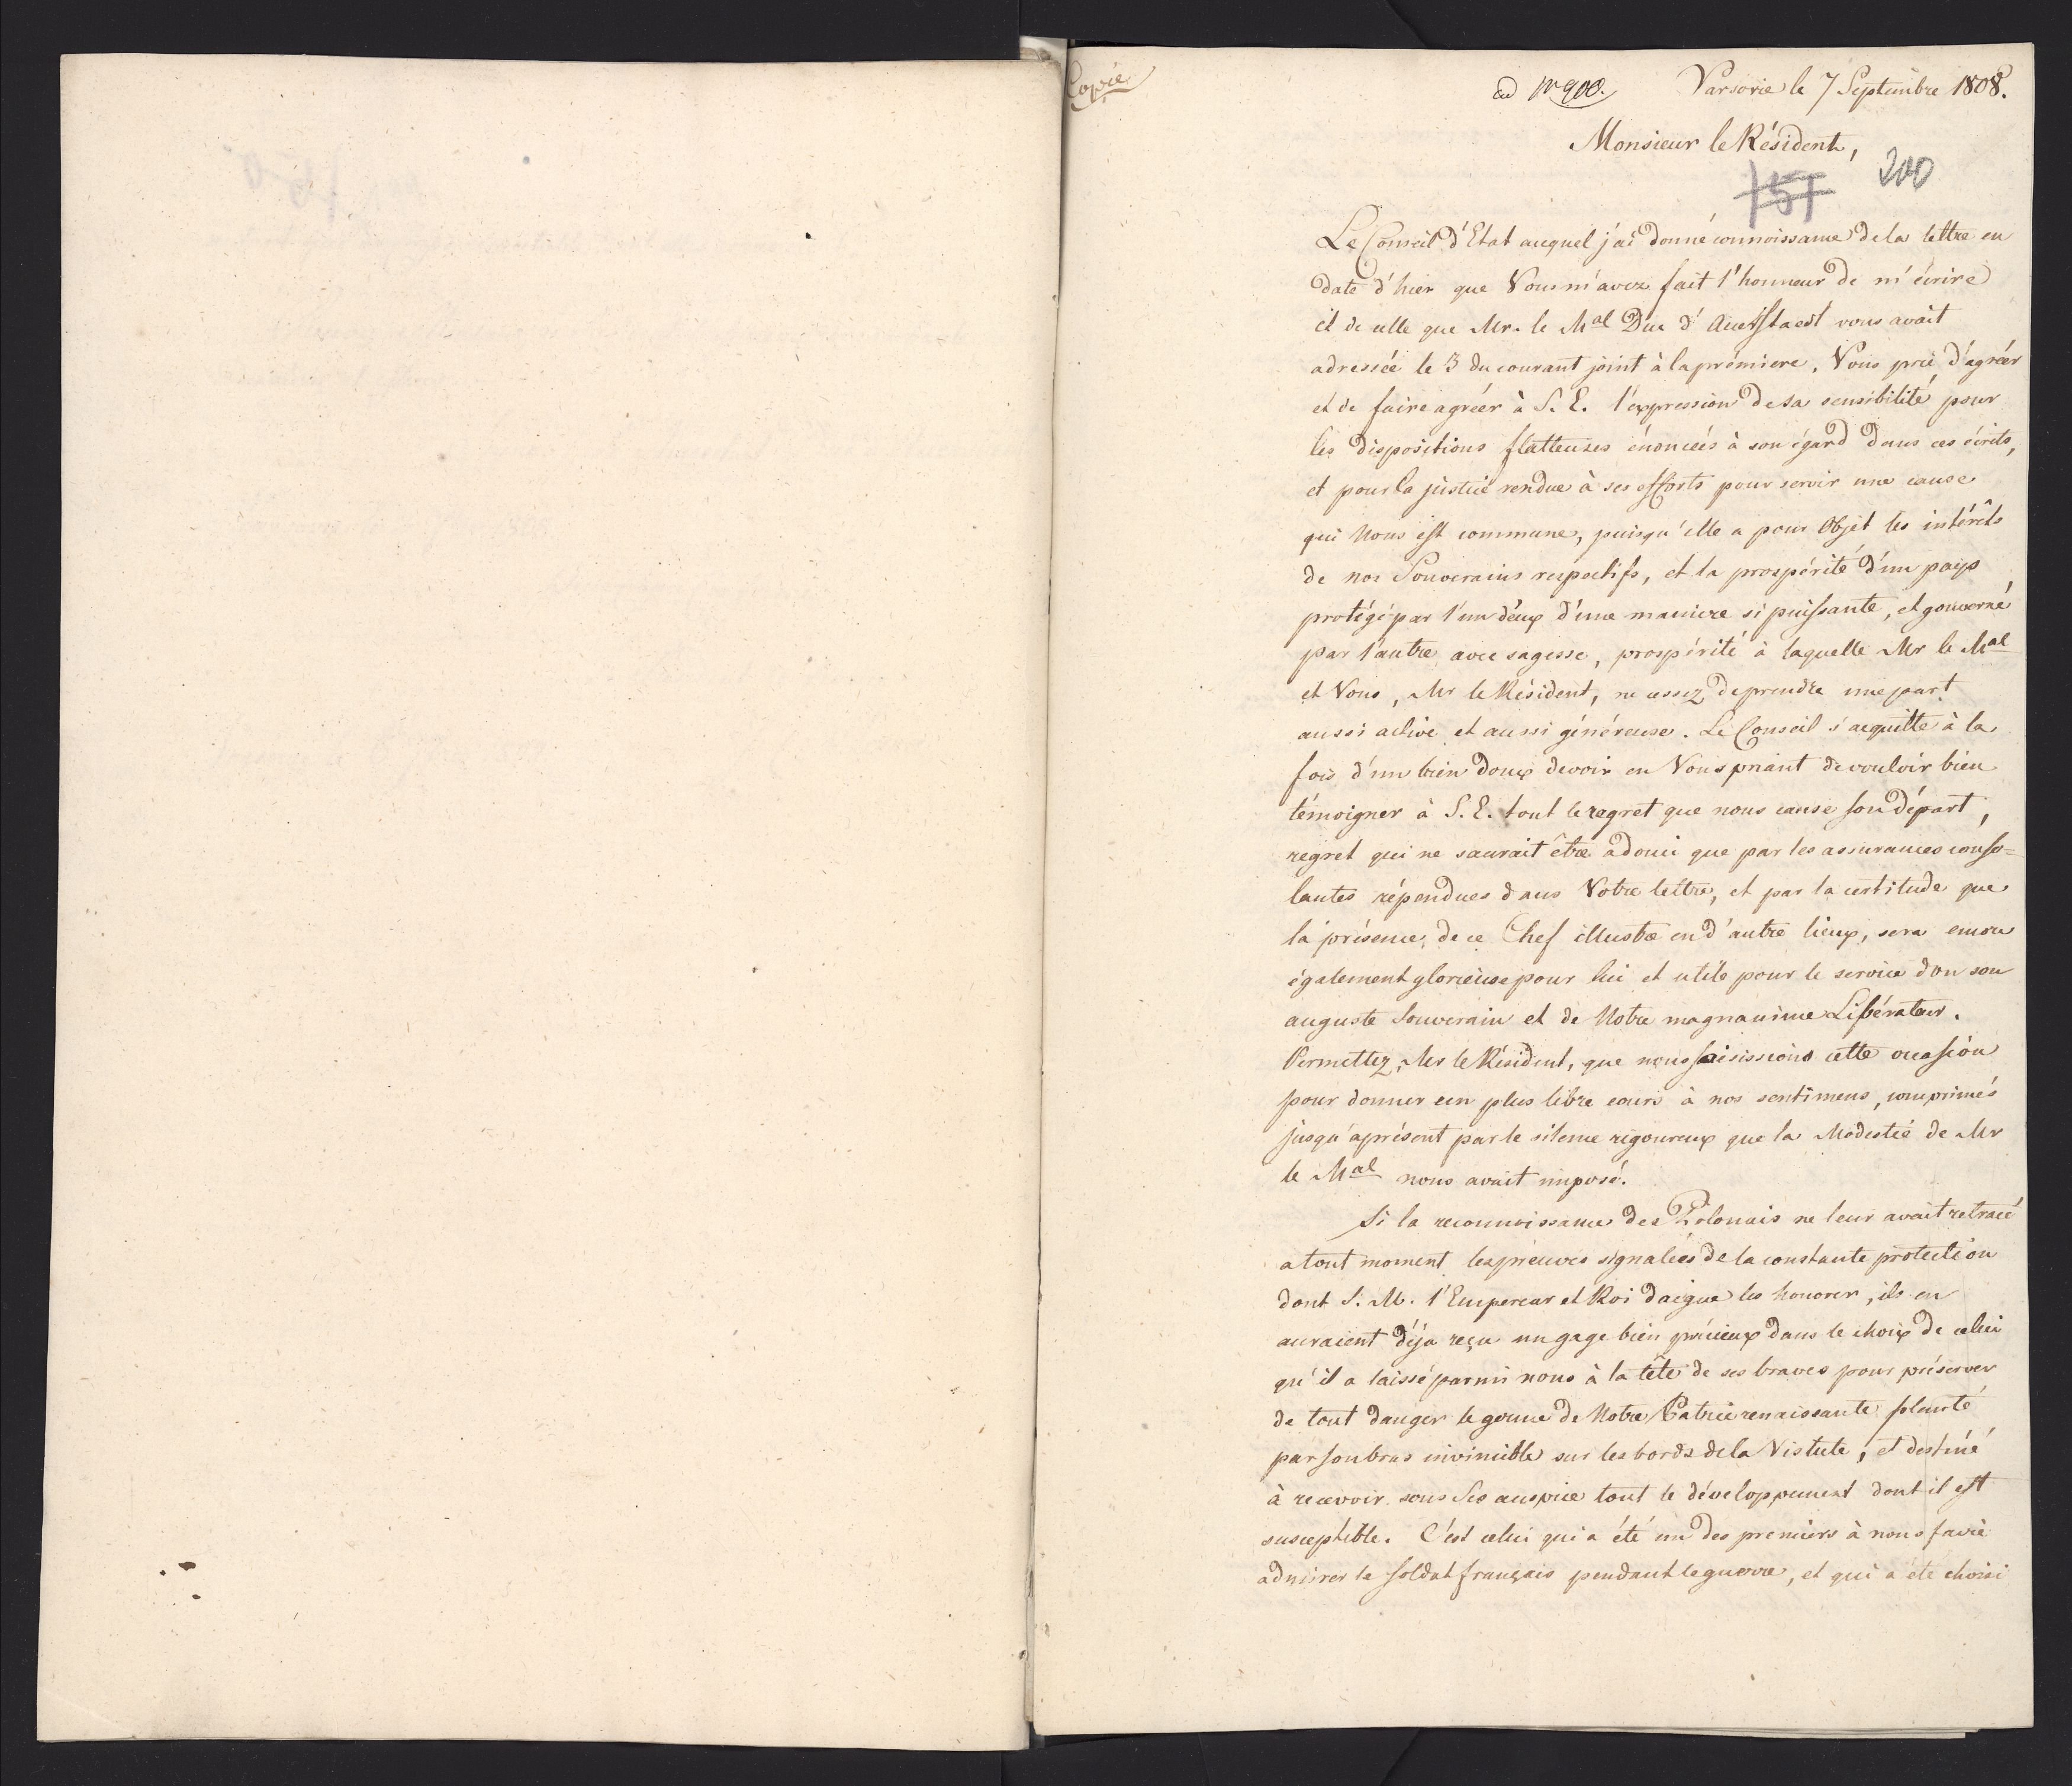 Copie
ad Nr 900. Varsovie le 7 Septembre 1808.
Monsieur le Résident,
200
151
Le Conseil d'Etat auquel j'ai donné connoissance de la lettre en
date d'hier que Vous m'avez fait l'honneur de m'écrire
et de celle que Mr. le Mal Duc d'Auerstaedt vous avait
adressée le 3 du courant joint à la prémiere, Vous prie d'agréer
et de faire agréer à S. E. l'expression de sa sensibilité pour
les dispositions flatteuses énoncées à son égard dans ces écrits,
et pour la justice rendue à ses efforts pour servir une cause
qui Nous est commune, puisqu'elle a pour Objet les intérêts
de nos Souverains respectifs, et la prospérité d'un pays
protégé par l'un d'eux d'une maniere si puissante, et gouverné
par l'autre avec sagesse, prospérité à laquelle Mr le Mal
et Vous, Mr le Résident, ne cessez de prendre une part
aussi active et aussi généreuse. Le Conseil s'acquitte à la
fois d'un bien doux devoir en Vous priant de vouloir bien
témoigner à S. E. tout le regret que nous cause son départ,
regret qui ne saurait être adouci que par les assurances conso=
lantes répendues dans Votre lettre, et par la certitude que
la présence de ce Chef illustre en d'autre lieux, sera encore
également glorieuse pour lui et utile pour le service d'on son
auguste Souverain et de Notre magnanime Libérateur.
Permettez, Mr le Résident, que nous saisissions cette occasion
pour donner un plus libre cours à nos sentimens, comprimés
jusqu'aprésent par le silence rigoureux que la Modestie de Mr
le Mal nous avait imposé.
Si la reconnoissance des Polonais ne leur avait retracé
a tout moment les preuves signalées de la constante protection
dont S. M. l'Empereur et Roi daigne les honorer, ils en
auraient déja reçu un gage bien précieux dans le choix de celui
qu'il a laissé parmi nous à la tête de ses braves pour préserver
de tout danger le germe de Notre Patrie renaissante planté
par son bras invincible sur les bords de la Vistule, et destiné
à recevoir sous Ses auspice tout le développement dont il est
susceptible. C'est celui qui a été un des premiers à nous faire
admirer le soldat français pendant le guerre, et qui a été choisi